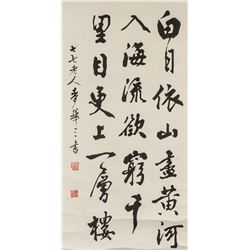 白日依山盡黃河
入海流欲窮千
里目更上一層樓
七七老人李華三书